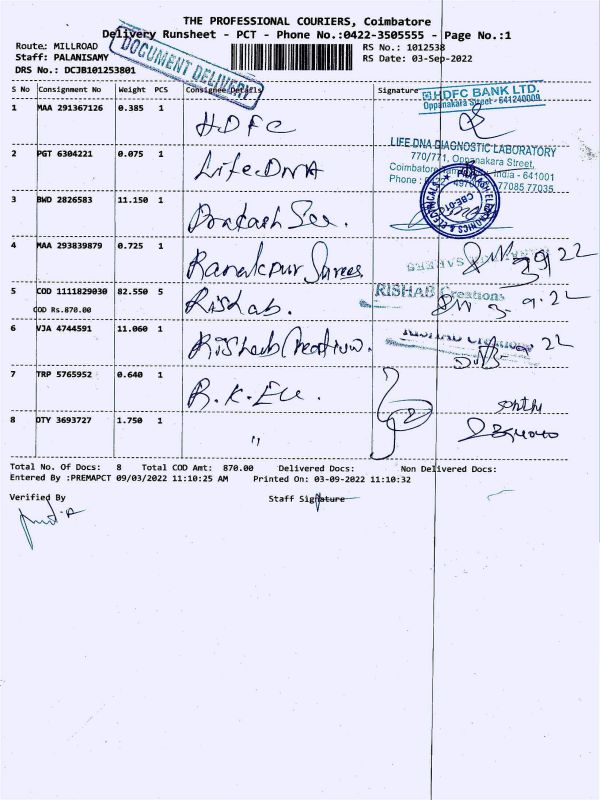 THE PROFESSIONAL COURIERS, Coimbatore
Delivery Runsheet - PCT - Phone No.:0422-3505555 - Page No.:1
Route: MILLROAD
RS No.: 1012538
Staff: PALANISAMY
RS Date: 03-Sep-2022
DRS No.: DCJB101253801
DOCUMENT DELIVERY
S No Consignment No Weight PCS Consignee Details Signature
HDFC BANK LTD.
Oppanakara Street - 641240009
1 MAA 291367126 0.385 1 HDFC
LIFE DNA DIAGNOSTIC LABORATORY
770/771, Oppanakara Street,
Coimbatore India - 641001
Phone : 77085 77035
2 PGT 6304221 0.075 1 Life DNA
PRAKASH ELECTRONICS & ELECTRICALS
CBE-01
3 BWD 2826583 11.150 1 Prakash
4 MAA 293839879 0.725 1 Ranakpur
5 COD 1111829030 82.550 5 Rishab.
COD Rs.870.00
RISHAB Creations
3.9.22
6 VJA 4744591 11.060 1 Rishab Creation.
RISHAB Creations
7 TRP 5765952 0.640 1 R.K.
8 DTY 3693727 1.750 1 "
Total No. Of Docs: 8 Total COD Amt: 870.00 Delivered Docs: Non Delivered Docs:
Entered By :PREMAPCT 09/03/2022 11:10:25 AM Printed On: 03-09-2022 11:10:32
Verified By Staff Signature